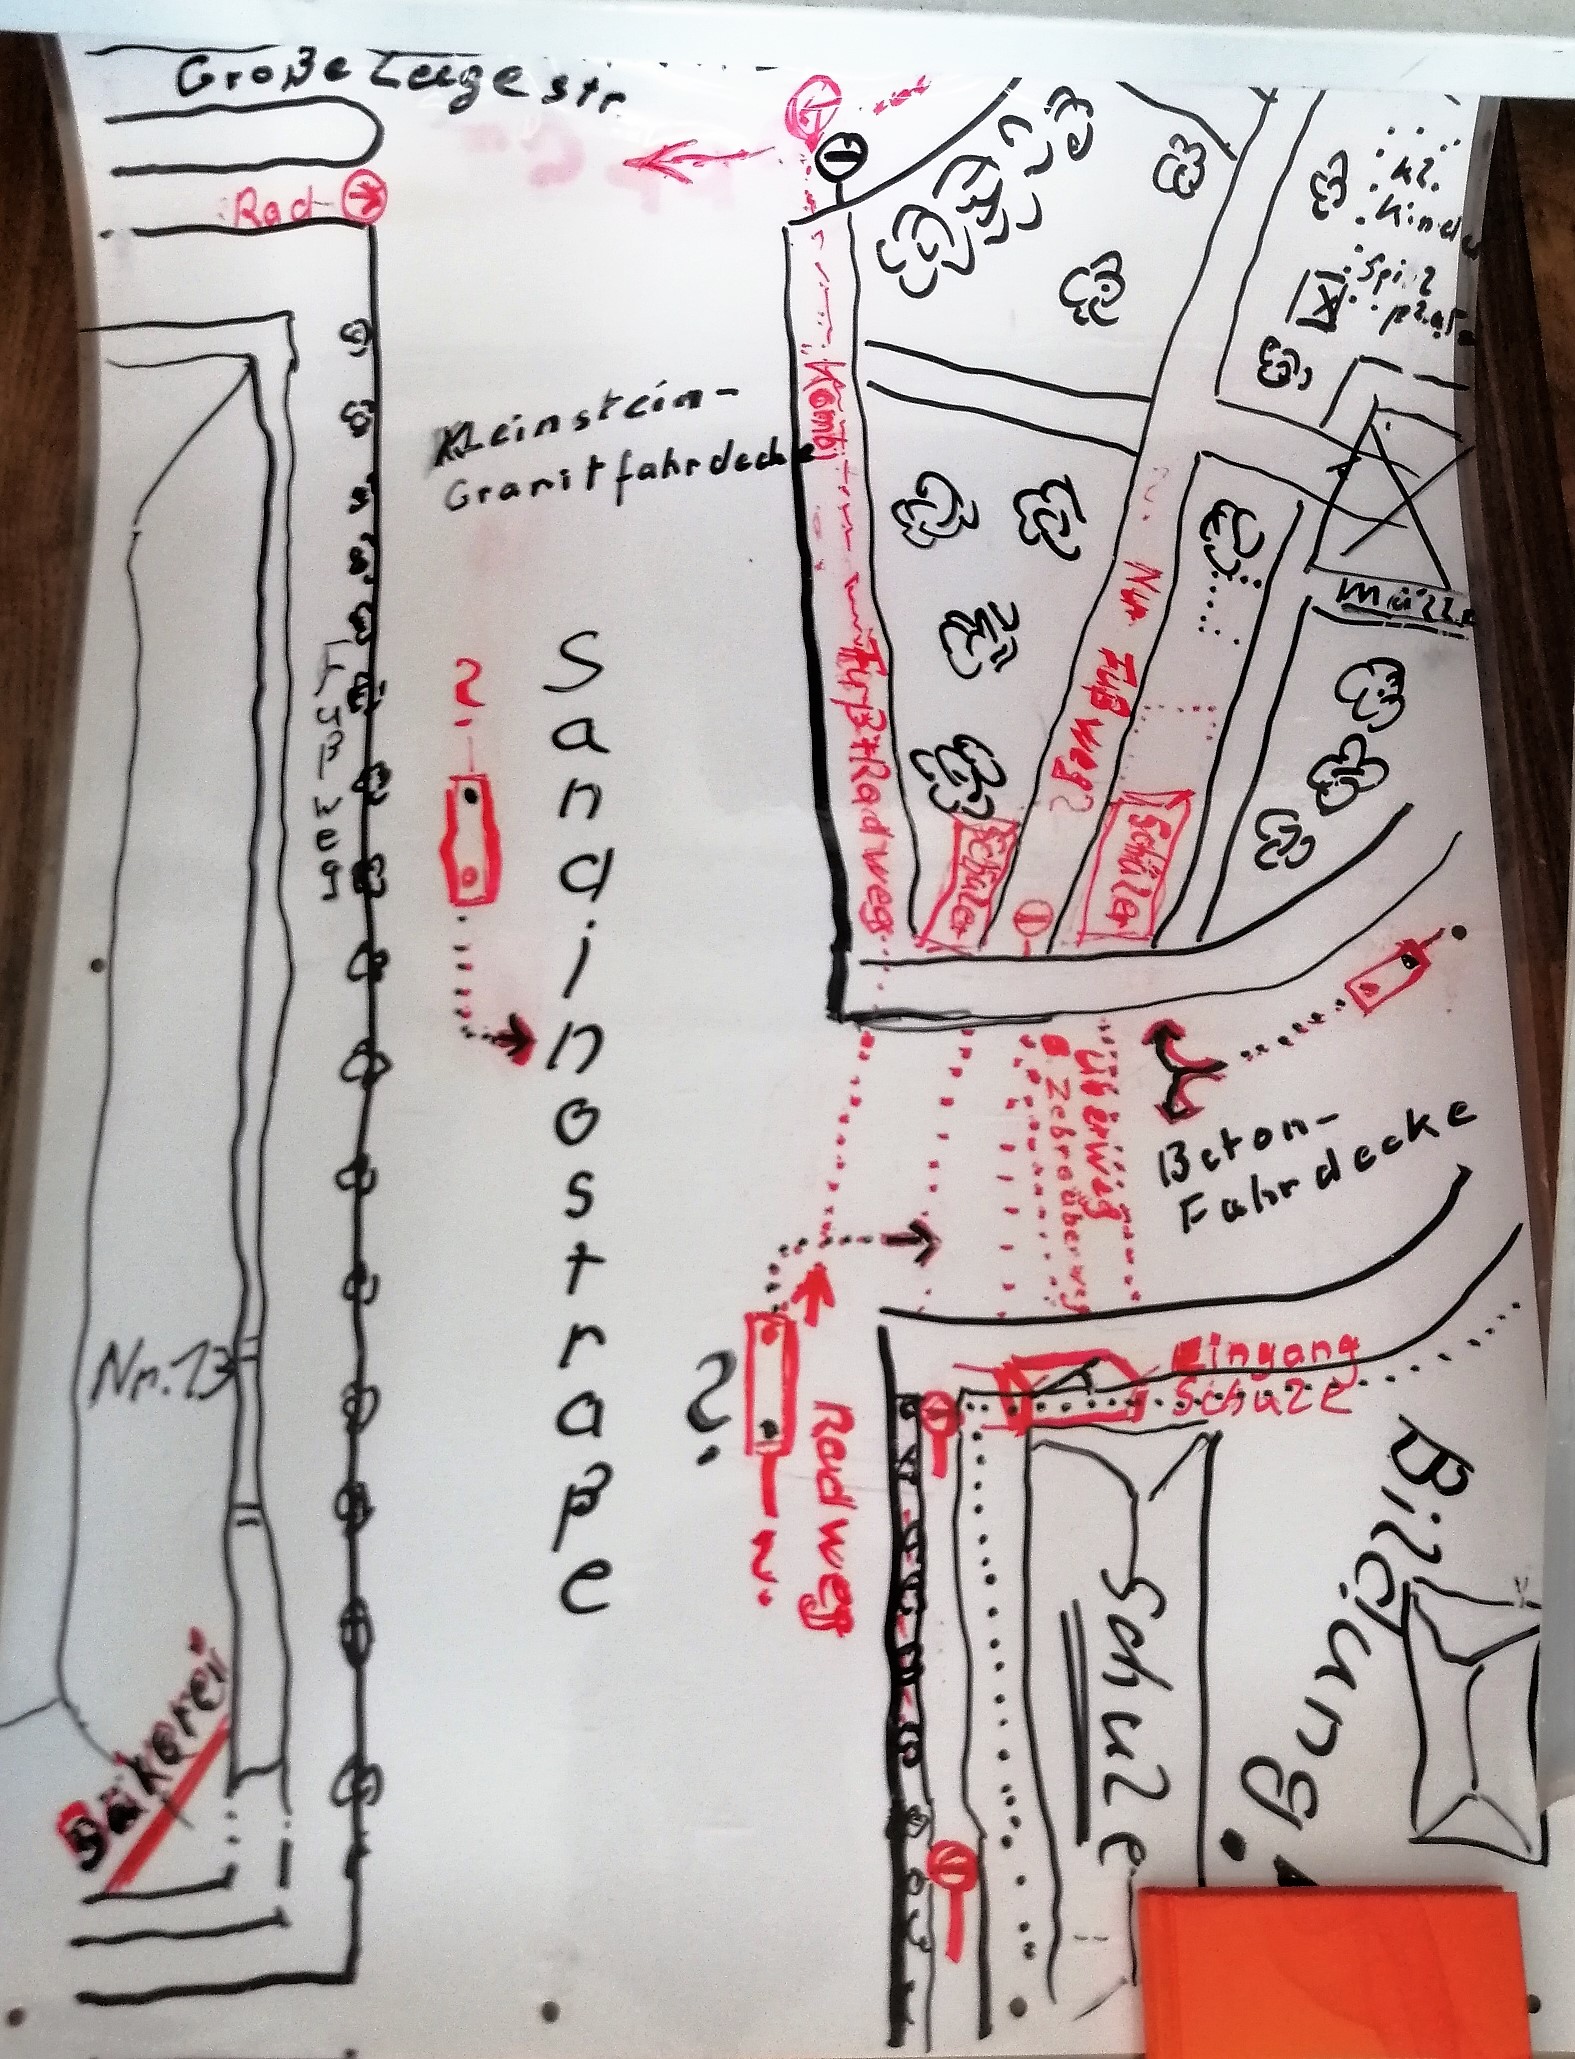 Große Leegestr.
Rad
Kleinstein-
Granitfahrdecke
Fußweg
Sandinostraße
?
Kombi
Fuß+Radweg
Nur Fußweg?
Schüler
Schüler
Kl.
Kinder
Spiel
platz
Mülle
Überweg
Zebraüberweg
Beton-
Fahrdecke
Nr. 13
?
Radweg
Eingang
Schule
Schule
Bildung.
Bäkerei